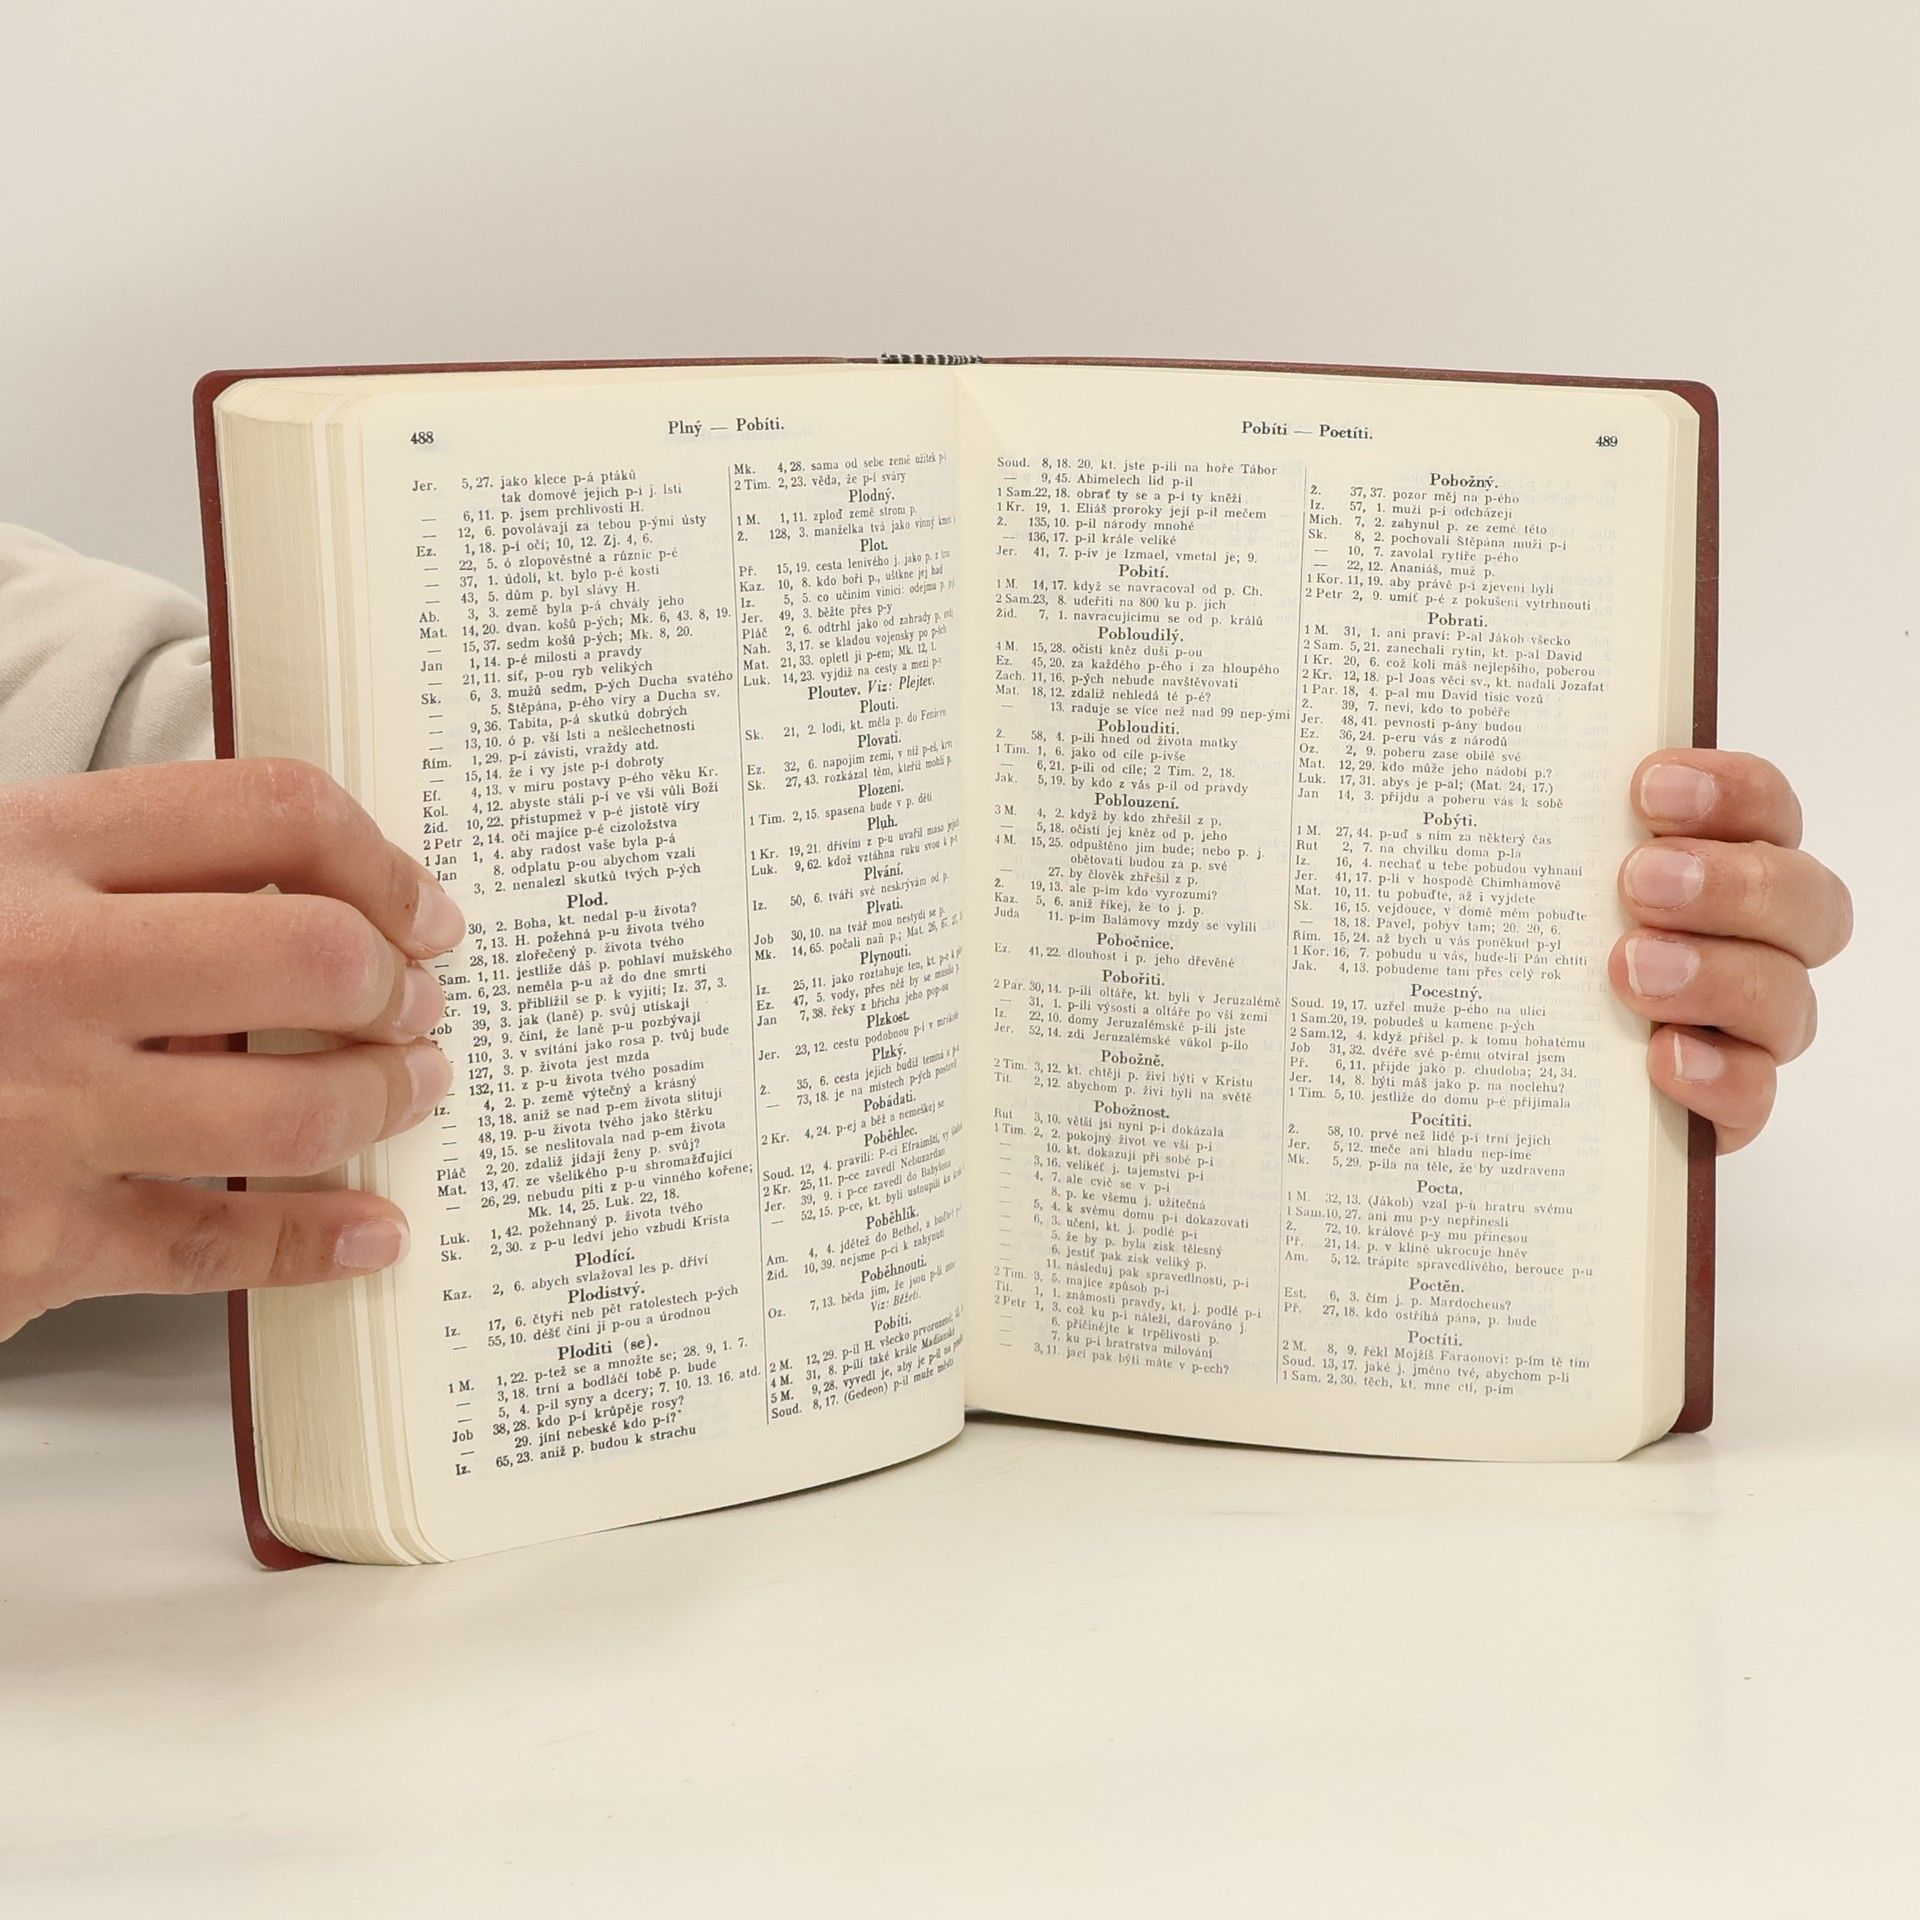 488
Plný — Pobíti.
Jer. 5, 27. jako klece p-á ptáků
tak domové jejich p-i j. lsti
— 6, 11. p. jsem prchlivosti H.
— 12, 6. povolávají za tebou p-ými ústy
Ez. 1, 18. p-í očí; 10, 12. Zj. 4, 6.
— 22, 5. ó zlopověstné a různic p-é
— 37, 1. údolí, kt. bylo p-é kostí
— 43, 5. dům p. byl slávy H.
Ab. 3, 3. země byla p-á chvály jeho
Mat. 14, 20. dvan. košů p-ých; Mk. 6, 43. 8, 19.
— 15, 37. sedm košů p-ých; Mk. 8, 20.
Jan 1, 14. p-é milosti a pravdy
— 21, 11. síť, p-ou ryb velikých
Sk. 6, 3. mužů sedm, p-ých Ducha svatého
— 5. Štěpána, p-ého víry a Ducha sv.
— 9, 36. Tabita, p-á skutků dobrých
— 13, 10. ó p. vší lsti a nešlechetnosti
Řím. 1, 29. p-í závisti, vraždy atd.
— 15, 14. že i vy jste p-í dobroty
Ef. 4, 13. v míru postavy p-ého věku Kr.
Kol. 4, 12. abyste stáli p-í ve vší vůli Boží
Žid. 10, 22. přistupmež v p-é jistotě víry
2 Petr 2, 14. oči majíce p-é cizoložstva
1 Jan 1, 4. aby radost vaše byla p-á
Jan 8. odplatu p-ou abychom vzali
3, 2. nenalezl skutků tvých p-ých
Plod.
30, 2. Boha, kt. nedal p-u života?
7, 13. H. požehná p-u života tvého
— 28, 18. zlořečený p. života tvého
Sam. 1, 11. jestliže dáš p. pohlaví mužského
Sam. 6, 23. neměla p-u až do dne smrti
Kr. 19, 3. přiblížil se p. k vyjití; Iz. 37, 3.
Job 39, 3. jak (laně) p. svůj utiskají
29, 9. činí, že laně p-u pozbývají
110, 3. v svítání jako rosa p. tvůj bude
127, 3. p. života jest mzda
— 132, 11. z p-u života tvého posadím
Iz. 4, 2. p. země výtečný a krásný
— 13, 18. aniž se nad p-em života slitují
— 48, 19. p-u života tvého jako štěrku
— 49, 15. se neslitovala nad p-em života
Pláč 2, 20. zdaliž jídají ženy p. svůj?
Mat. 13, 47. ze všelikého p-u shromažďující
— 26, 29. nebudu píti z p-u vinného kořene;
Mk. 14, 25. Luk. 22, 18.
Luk. 1, 42. požehnaný p. života tvého
Sk. 2, 30. z p-u ledví jeho vzbudí Krista
Plodící.
Kaz. 2, 6. abych svlažoval les p. dříví
Plodistvý.
Iz. 17, 6. čtyři neb pět ratolestech p-ých
— 55, 10. déšť činí ji p-ou a úrodnou
Ploditi (se).
1 M. 1, 22. p-tež se a množte se; 28. 9, 1. 7.
— 3, 18. trní a bodláčí tobě p. bude
— 5, 4. p-il syny a dcery; 7. 10. 13. 16. atd.
Job 38, 28. kdo p-í krůpěje rosy?
— 29. jíní nebeské kdo p-í?
Iz. 65, 23. aniž p. budou k strachu
Mk. 4, 28. sama od sebe země užitek p-í
2 Tim. 2, 23. věda, že p-í sváry
Plodný.
1 M. 1, 11. zploď země strom p.
Ž. 128, 3. manželka tvá jako vinný kmen
Plot.
Př. 15, 19. cesta lenivého j. jako p. z trní
Kaz. 10, 8. kdo boří p., uštkne jej had
Iz. 5, 5. co učiním vinici: odejmu p.
Jer. 49, 3. běžte přes p-y
Pláč 2, 6. odtrhl jako od zahrady p. svůj
Nah. 3, 17. se kladou vojensky po p-ích
Mat. 21, 33. opletl ji p-em; Mk. 12, 1.
Luk. 14, 23. vyjdiž na cesty a mezi p-y
Ploutev. Viz: Plejtev.
Plouti.
Sk. 21, 2. lodí, kt. měla p. do Fenicen
Plovati.
Ez. 32, 6. napojím zemi, v níž p-eš, krví
Sk. 27, 43. rozkázal těm, kteříž mohli p.
Plození.
1 Tim. 2, 15. spasena bude v p. dětí
Pluh.
1 Kr. 19, 21. dřívím z p-u uvařil maso jejich
Luk. 9, 62. kdož vztáhna ruku svou k p-u
Plvání.
Iz. 50, 6. tváři své neskrývám od p.
Plvati.
Job 30, 10. na tvář mou nestydí se p.
Mk. 14, 65. počali naň p.; Mat. 26, 67. 27,
Plynouti.
Iz. 25, 11. jako roztahuje ten, kt. p-e
Ez. 47, 5. vody, přes něž by se musilo p.
Jan 7, 38. řeky z břicha jeho pop-ou
Plzkost.
Jer. 23, 12. cestu podobnou p-i v mrákotě
Plzký.
Ž. 35, 6. cesta jejich budiž temná a p-á
— 73, 18. je na místech p-ých postavil
Pobádati.
2 Kr. 4, 24. p-ej a běž a nemeškej se
Poběhlec.
Soud. 12, 4. pravili: P-ci Efraimští, vy
2 Kr. 25, 11. p-ce zavedl Nebuzardan
Jer. 39, 9. i p-ce zavedl do Babylona
— 52, 15. p-ce, kt. byli ustoupili ku
Poběhlík.
Am. 4, 4. jdětež do Bethel, a buďtež
Žid. 10, 39. nejsme p-ci k zahynutí
Poběhnouti.
Oz. 7, 13. běda jim, že jsou p-li
Viz: Běžeti.
Pobíti.
2 M. 12, 29. p-il H. všecko prvorozené,
4 M. 31, 8. p-ili také krále Madianské
5 M. 9, 28. vyvedl je, aby je p-il na poušti
Soud. 8, 17. (Gedeon) p-il muže města
Pobíti — Poctíti.
489
Soud. 8, 18. 20. kt. jste p-ili na hoře Tábor
— 9, 45. Abimelech lid p-il
1 Sam. 22, 18. obrať ty se a p-í ty kněží
1 Kr. 19, 1. Eliáš proroky její p-il mečem
Ž. 135, 10. p-il národy mnohé
— 136, 17. p-il krále veliké
Jer. 41, 7. p-iv je Izmael, vmetal je; 9.
Pobití.
1 M. 14, 17. když se navracoval od p. Ch.
2 Sam. 23, 8. udeřiti na 800 ku p. jich
Žid. 7, 1. navracujícímu se od p. králů
Pobloudilý.
4 M. 15, 28. očistí kněz duši p-ou
Ez. 45, 20. za každého p-ého i za hloupého
Zach. 11, 16. p-ých nebude navštěvovati
Mat. 18, 12. zdaliž nehledá té p-é?
— 13. raduje se více než nad 99 nep-ými
Poblouditi.
Ž. 58, 4. p-ili hned od života matky
1 Tim. 1, 6. jako od cíle p-ivše
— 6, 21. p-ili od cíle; 2 Tim. 2, 18.
Jak. 5, 19. by kdo z vás p-il od pravdy
Poblouzení.
3 M. 4, 2. když by kdo zhřešil z p.
— 5, 18. očistí jej kněz od p. jeho
4 M. 15, 25. odpuštěno jim bude; nebo p. j.
obětovati budou za p. své
— 27. by člověk zhřešil z p.
Ž. 19, 13. ale p-ím kdo vyrozumí?
Kaz. 5, 6. aniž říkej, že to j. p.
Juda 11. p-ím Balámovy mzdy se vylili
Pobočnice.
Ez. 41, 22. dlouhost i p. jeho dřevěné
Pobořiti.
2 Par. 30, 14. p-ili oltáře, kt. byli v Jeruzalémě
— 31, 1. p-ili výsosti a oltáře po vší zemi
Iz. 22, 10. domy Jeruzalémské p-ili jste
Jer. 52, 14. zdi Jeruzalémské vůkol p-ilo
Pobožně.
2 Tim. 3, 12. kt. chtějí p. živi býti v Kristu
Tit. 2, 12. abychom p. živi byli na světě
Pobožnost.
Rut 3, 10. větší jsi nyní p-i dokázala
1 Tim. 2, 2. pokojný život ve vší p-i
— 10. kt. dokazují při sobě p-i
— 3, 16. velikéť j. tajemství p-i
— 4, 7. ale cvič se v p-i
— 8. p. ke všemu j. užitečná
— 5, 4. k svému domu p-i dokazovati
— 6, 3. učení, kt. j. podlé p-i
— 5. že by p. byla zisk tělesný
— 6. jestiť pak zisk veliký p.
— 11. následuj pak spravedlnosti, p-i
2 Tim. 3, 5. majíce způsob p-i
Tit. 1, 1. známosti pravdy, kt. j. podlé p-i
2 Petr 1, 3. což ku p-i náleží, darováno j.
— 6. přičinějte k trpělivosti p.
— 7. ku p-i bratrstva milování
— 3, 11. jací pak býti máte v p-ech?
Pobožný.
Ž. 37, 37. pozor měj na p-ého
Iz. 57, 1. muži p-í odcházejí
Mich. 7, 2. zahynul p. ze země této
Sk. 8, 2. pochovali Štěpána muži p-í
— 10, 7. zavolal rytíře p-ého
— 22, 12. Ananiáš, muž p.
1 Kor. 11, 19. aby právě p-í zjeveni byli
2 Petr 2, 9. umíť p-é z pokušení vytrhnouti
Pobrati.
1 M. 31, 1. ani praví: P-al Jákob všecko
2 Sam. 5, 21. zanechali rytin, kt. p-al David
1 Kr. 20, 6. což koli máš nejlepšího, poberou
2 Kr. 12, 18. p-l Joas věci sv., kt. nadali Jozafat
1 Par. 18, 4. p-al mu David tisíc vozů
Ž. 39, 7. neví, kdo to pobéře
Jer. 48, 41. pevnosti p-ány budou
Ez. 36, 24. p-eru vás z národů
Oz. 2, 9. poberu zase obilé své
Mat. 12, 29. kdo může jeho nádobí p.?
Luk. 17, 31. abys je p-al; (Mat. 24, 17.)
Jan 14, 3. přijdu a poberu vás k sobě
Pobýti.
1 M. 27, 44. p-uď s ním za některý čas
Rut 2, 7. na chvilku doma p-la
Iz. 16, 4. nechať u tebe pobudou vyhnaní
Jer. 41, 17. p-li v hospodě Chimhamově
Mat. 10, 11. tu pobuďte, až i vyjdete
Sk. 16, 15. vejdouce, v domě mém pobuďte
— 18, 18. Pavel, pobyv tam; 20. 20, 6.
Řím. 15, 24. až bych u vás poněkud p-yl
1 Kor. 16, 7. pobudu u vás, bude-li Pán chtíti
Jak. 4, 13. pobudeme tam přes celý rok
Pocestný.
Soud. 19, 17. uzřel muže p-ého na ulici
1 Sam. 20, 19. pobudeš u kamene p-ých
2 Sam. 12, 4. když přišel p. k tomu bohatému
Job 31, 32. dvéře své p-ému otvíral jsem
Př. 6, 11. přijde jako p. chudoba; 24, 34.
Jer. 14, 8. býti máš jako p. na noclehu?
1 Tim. 5, 10. jestliže do domu p-é přijímala
Pocítiti.
Ž. 58, 10. prvé než lidé p-í trní jejich
Jer. 5, 12. meče ani hladu nep-íme
Mk. 5, 29. p-ila na těle, že by uzdravena
Pocta.
1 M. 32, 13. (Jákob) vzal p-u bratru svému
1 Sam. 10, 27. ani mu p-y nepřinesli
Ž. 72, 10. králové p-y mu přinesou
Př. 21, 14. p. v klíně ukrocuje hněv
Am. 5, 12. trápíte spravedlivého, berouce p-u
Poctěn.
Est. 6, 3. čím j. p. Mardocheus?
Př. 27, 18. kdo ostříhá pána, p. bude
Poctíti.
2 M. 8, 9. řekl Mojžíš Faraonovi: p-ím tě tím
Soud. 13, 17. jaké j. jméno tvé, abychom p-li
1 Sam. 2, 30. těch, kt. mne ctí, p-ím